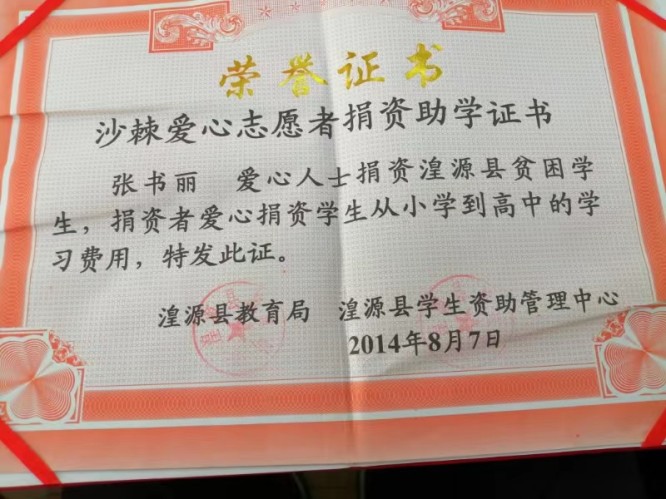 荣誉证书
沙棘爱心志愿者捐资助学证书
张书丽 爱心人士捐资湟源县贫困学
生，捐资者爱心捐资学生从小学到高中的学
习费用，特发此证。
湟源县教育局 湟源县学生资助管理中心
2014年8月7日